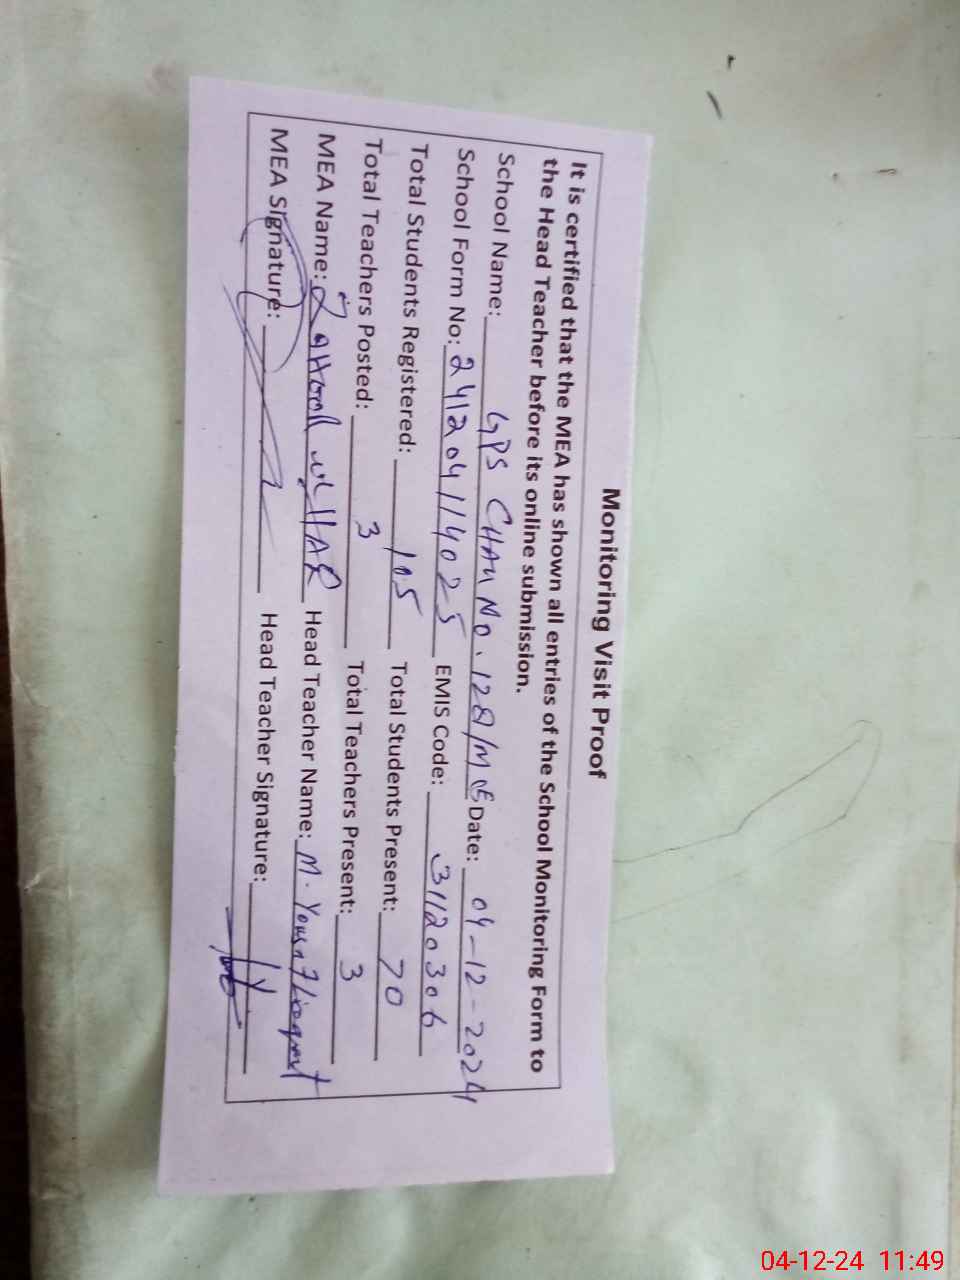 Monitoring Visit Proof
It is certified that the MEA has shown all entries of the School Monitoring Form to
the Head Teacher before its online submission.
School Name: GPS CHAK NO. 128/M Date: 04-12-2024
School Form No: 241204114025 EMIS Code: 31120306
Total Students Registered: 105 Total Students Present: 70
Total Teachers Posted: 3 Total Teachers Present: 3
MEA Name: Head Teacher Name: M. Yousaf Liaqat
MEA Signature: Head Teacher Signature:
04-12-24 11:49